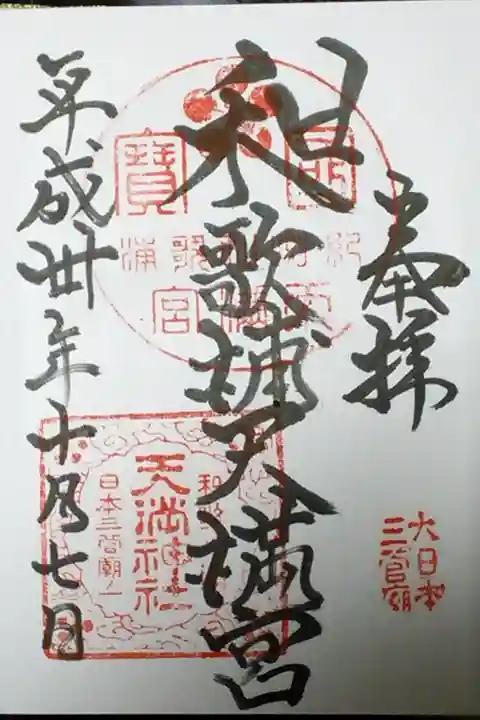 奉拝
大日本
三菅廟
和歌浦天満宮
寶
歌浦
宮
天満神社
日本三菅廟一
平成卅年十月七日